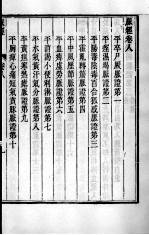 脈經卷八
平卒尸厥脈證第一
平痙濕暍脈證第二
平陽毒陰毒百合狐惑脈證第三
平霍亂轉筋脈證第四
平中風歷節脈證第五
平血痺虛勞脈證第六
平消渴小便利淋脈證第七
平水氣黃汗氣分脈證第八
平黃疸寒熱瘧脈證第九
平胸痺心痛短氣賁豚脈證第十